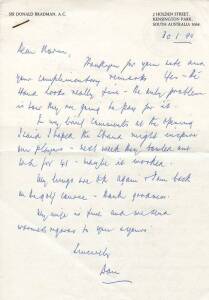 SIR DONALD BRADMAN, A.C.
2 HOLDEN STREET,
KENSINGTON PARK,
SOUTH AUSTRALIA 5068
30/1/90
Dear
Thankyou for your note and
your complimentary remarks. Yes - the
stand looks really fine - the only problem
is how they are going to pay for it.
In my brief comments at the opening
I said I hoped the Stand might inspire
our players - well
for 41 - maybe it worked.
My lungs are OK again & I am back
on the golf course - thank goodness.
My wife is fine and we send
warmest regards to you
Sincerely
Don